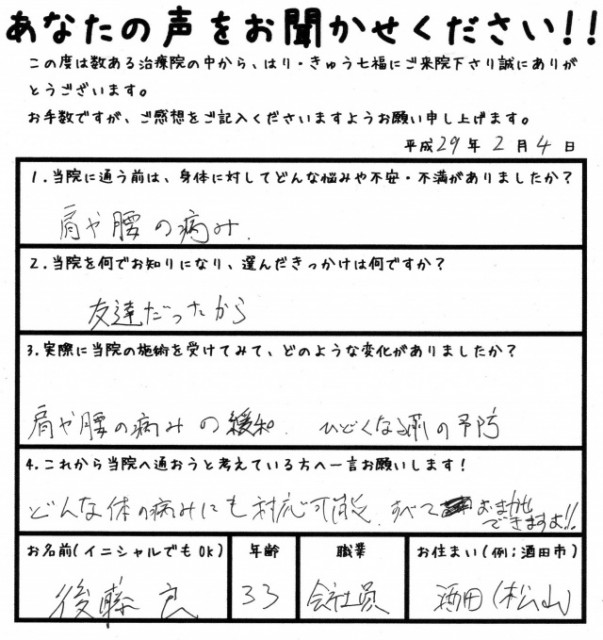 あなたの声をお聞かせください!!
この度は数ある治療院の中から、はり・きゅう七福にご来院下さり誠にありが
とうございます。
お手数ですが、ご感想をご記入くださいますようお願い申し上げます。
平成29年2月4日
1.当院に通う前は、身体に対してどんな悩みや不安・不満がありましたか?
肩や腰の病み.
2.当院を何でお知りになり、選んだきっかけは何ですか?
友達だったから
3.実際に当院の施術を受けてみて、どのような変化がありましたか?
肩や腰の病みの緩和. ひどくなる前の予防
4.これから当院へ通おうと考えている方へ一言お願いします!
どんな体の病みにも対応可能. すべておまかせ
できますよ!!
お名前(イニシャルでもOK) 年齢 職業 お住まい(例;酒田市)
後藤 良 33 会社員 酒田(松山)